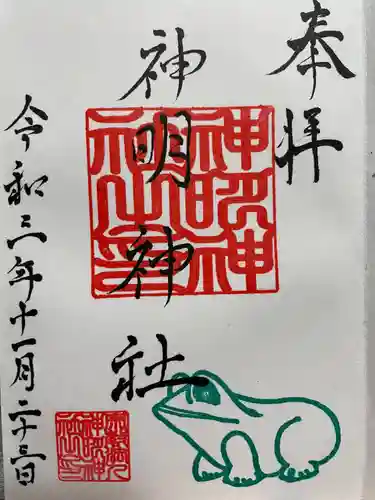 奉拝
神明神社
神明神社之印
令和三年十一月二十三日